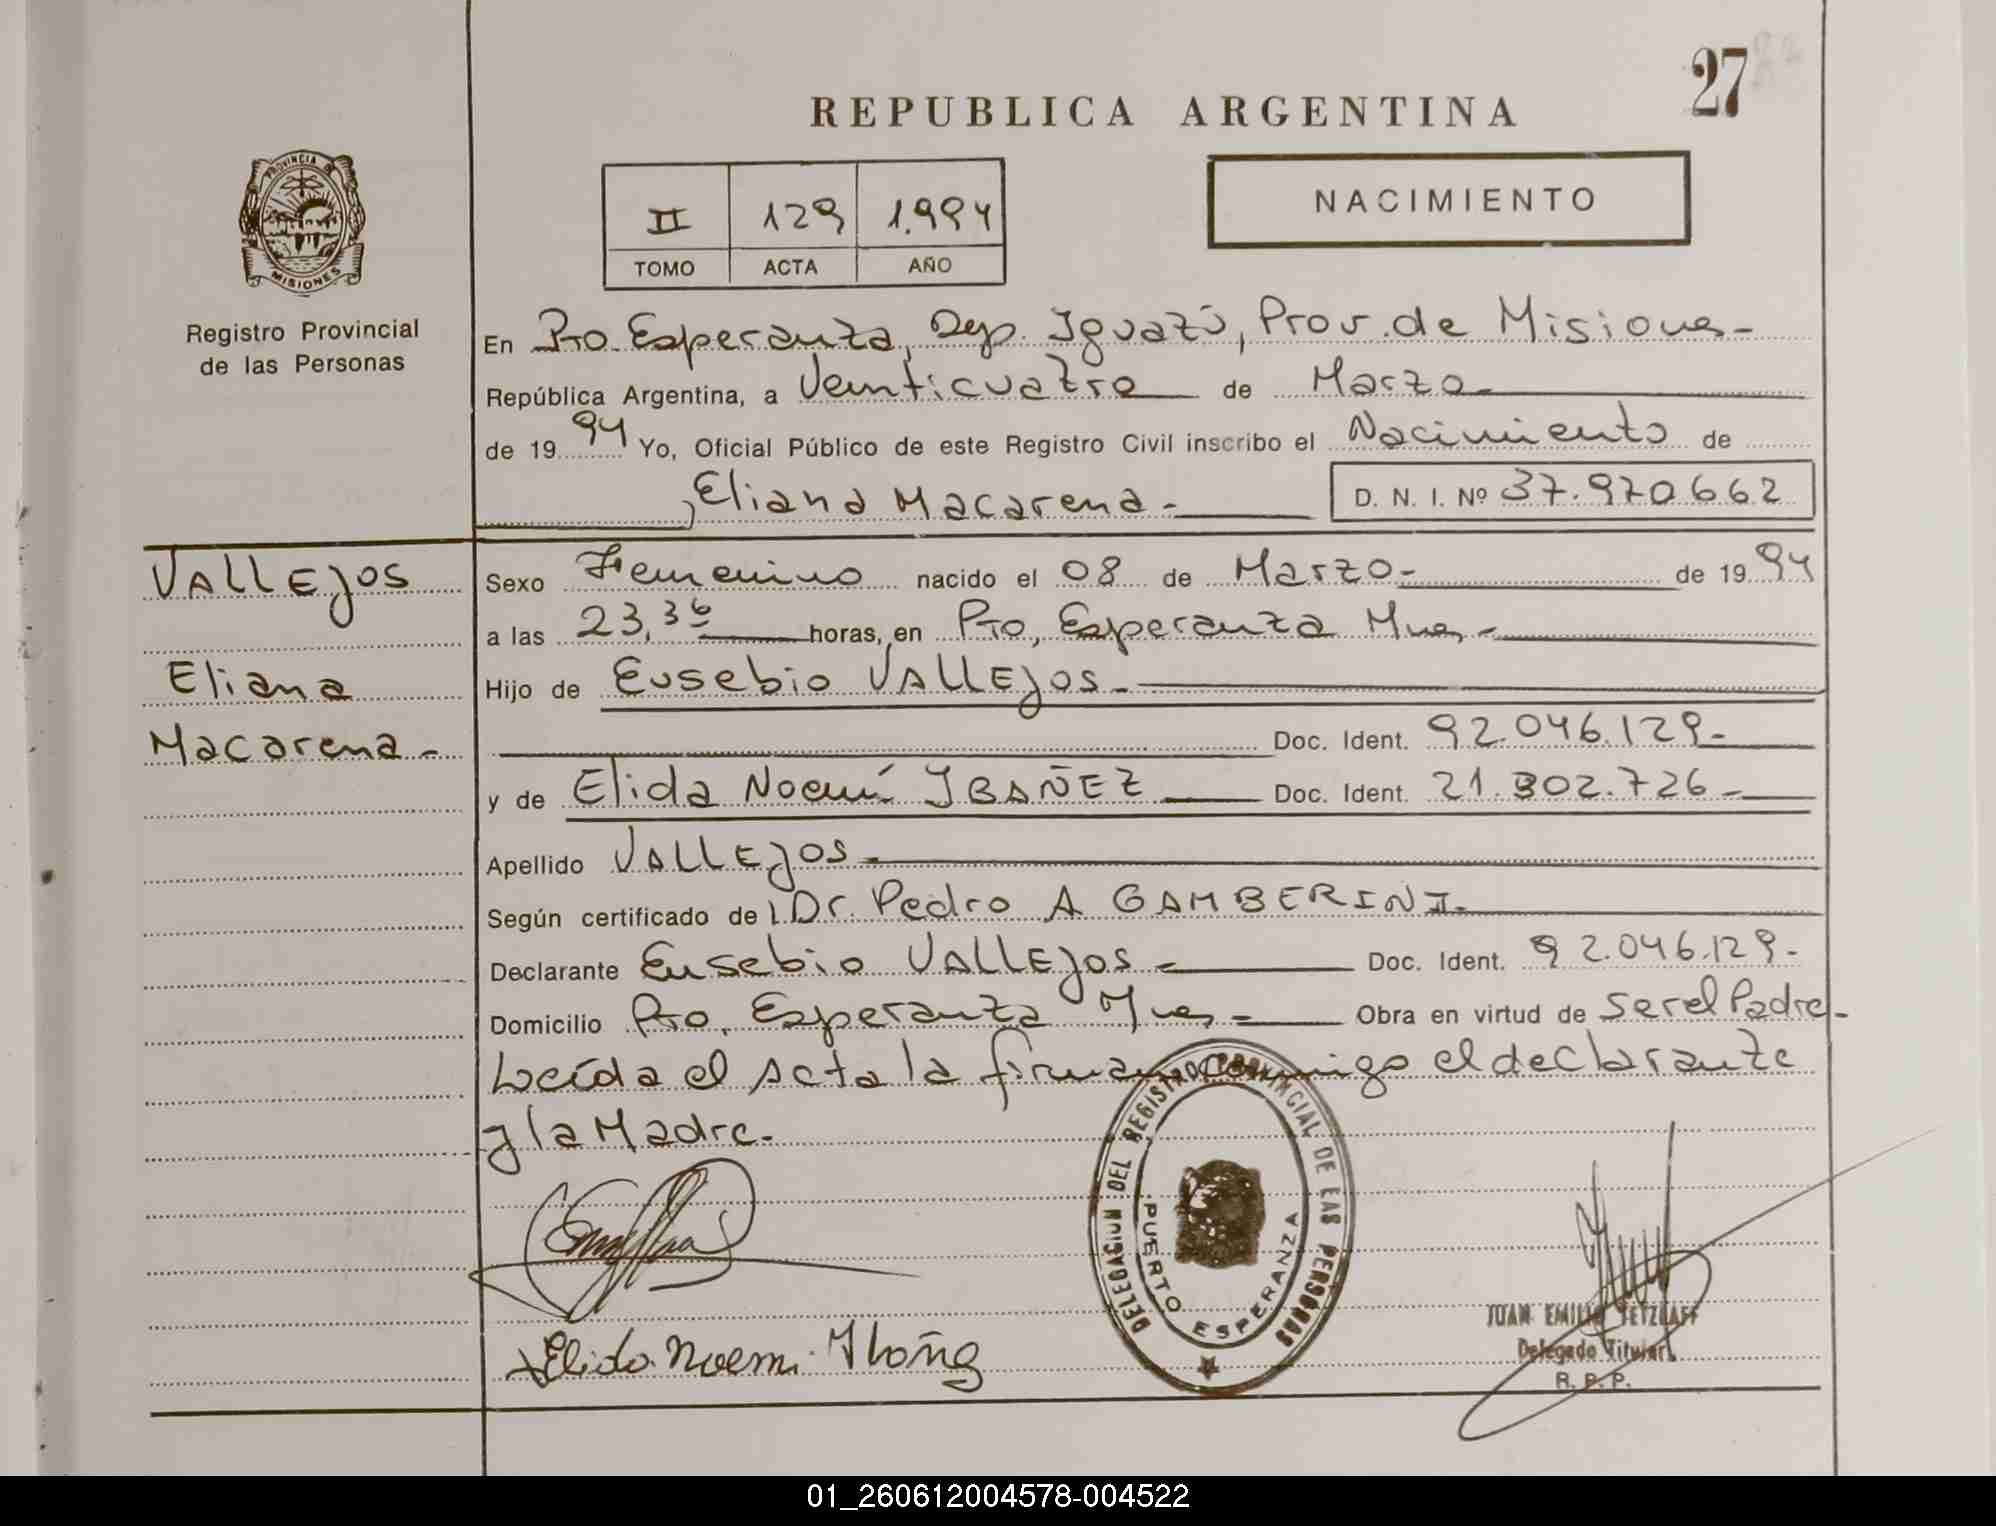 27
REPUBLICA ARGENTINA
PROVINCIA DE
MISIONES
Registro Provincial
de las Personas
II 129 1.994
TOMO ACTA AÑO
NACIMIENTO
En Pto. Esperanza, Dep. Iguazú, Prov. de Misiones-
República Argentina, a Veinticuatro de Marzo-
de 19 94 Yo, Oficial Público de este Registro Civil inscribo el Nacimiento de
Eliana Macarena- D. N. I. Nº 37.970662
VALLEJOS
Eliana
Macarena-
Sexo Femenino nacido el 08 de Marzo- de 19 94
a las 23,36 horas, en Pto, Esperanza Mnes,-
Hijo de Eusebio VALLEJOS-
Doc. Ident. 92.046.129-
y de Elida Noemí IBAÑEZ Doc. Ident. 21.302.726-
Apellido VALLEJOS-
Según certificado de Dr. Pedro A GAMBERINI-
Declarante Eusebio VALLEJOS- Doc. Ident. 92.046.129-
Domicilio Pto, Esperanza Mnes,- Obra en virtud de ser el Padre-
Leída el acta la firman conmigo el declarante
y la Madre-
DELEGACION DEL REGISTRO PROVINCIAL DE LAS PERSONAS
PUERTO ESPERANZA
Elida Noemi Ibañez
JUAN EMILIO TETZLAFF
Delegado Titular
R. P. P.
01_260612004578-004522